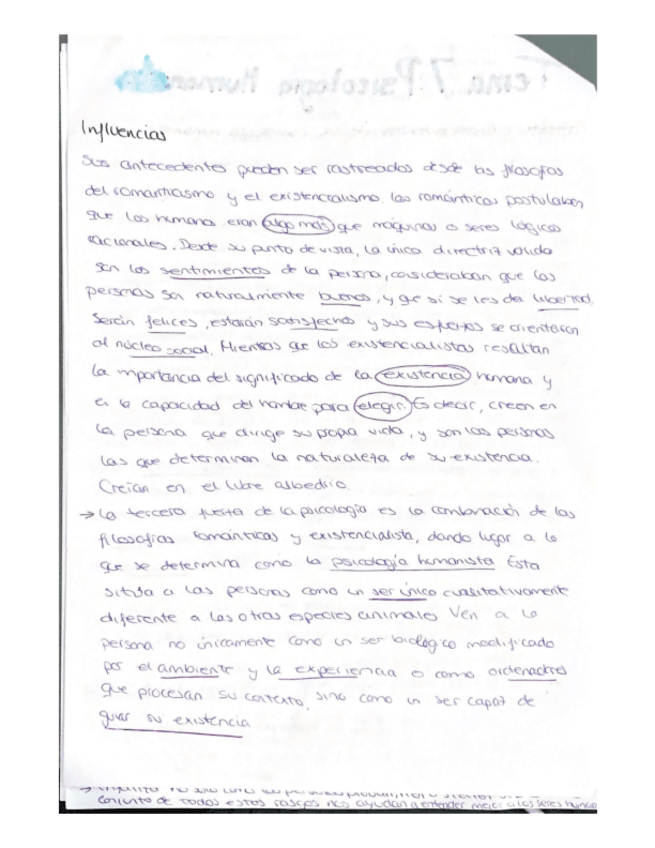 Tema 7 Psicología Humanista
Influencias
Sus antecedentes pueden ser rastreados desde las filosofías
del romanticismo y el existencialismo. Los románticos postulaban
que los humanos eran algo más que máquinas o seres lógicos
racionales. Desde su punto de vista, la única directriz válida
son los sentimientos de la persona, consideraban que las
personas son naturalmente buenas, y que si se les da libertad,
serán felices, estarán satisfechas y sus esfuerzos se orientarán
al núcleo social. Mientras que los existencialistas resaltan
la importancia del significado de la existencia humana y
en la capacidad del hombre para elegir. Es decir, creen en
la persona que dirige su propia vida, y son las personas
las que determinan la naturaleza de su existencia.
Creían en el libre albedrío.
→ La tercera fuerza de la psicología es la combinación de las
filosofías románticas y existencialista, dando lugar a lo
que se determina como la psicología humanista. Esta
sitúa a las personas como un ser único cualitativamente
diferente a las otras especies animales. Ven a la
persona no únicamente como un ser biológico modificado
por el ambiente y la experiencia o como ordenadores
que procesan su contexto, sino como un ser capaz de
guiar su existencia
conjunto de todos estos rasgos nos ayudan a entender mejor a los seres human